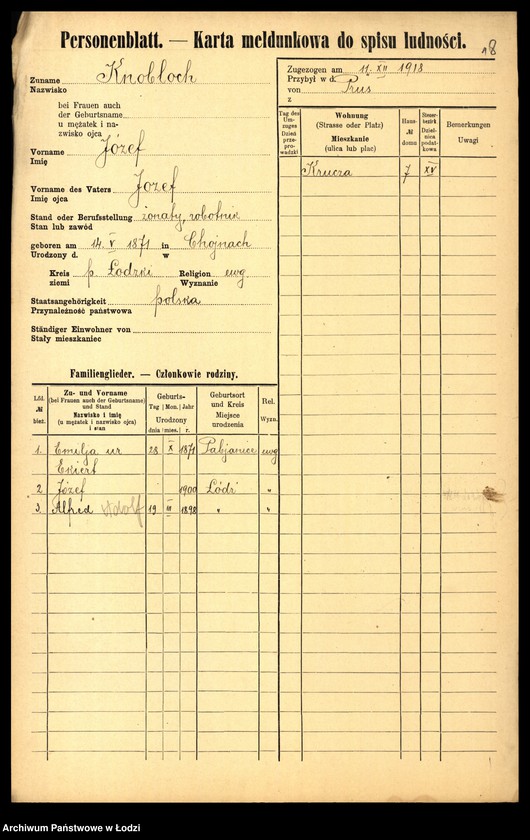 Personenblatt. — Karta meldunkowa do spisu ludności.
18
Zuname Knobloch
Nazwisko
bei Frauen auch
der Geburtsname
u mężatek i na-
zwisko ojca
Vorname Józef
Imię
Vorname des Vaters Jozef
Imię ojca
Stand oder Berufsstellung żonaty, robotnik
Stan lub zawód
geboren am 14. V 1871 in Chojnach
Urodzony d. w
Kreis p. Łodzki Religion ewg
ziemi Wyznanie
Staatsangehörigkeit polska
Przynależność państwowa
Ständiger Einwohner von
Stały mieszkaniec
Zugezogen am 11. XII 1918
Przybył w d.
von Prus
z
Tag des Um-zuges Dzień prze-pro-wadzki
Wohnung (Strasse oder Platz) Mieszkanie (ulica lub plac)
Haus- № domu
Steuer-bezirk. Dziel-nica podat-kowa
Bemerkungen Uwagi
Krucza 7 XV
Familienglieder. — Członkowie rodziny.
Lfd. № bież.
Zu- und Vorname (bei Frauen auch der Geburtsname) und Stand Nazwisko i imię (u mężatek i nazwisko ojca) i stan
Geburts- Tag Mon. Jahr Urodzony dnia mies. r.
Geburtsort und Kreis Miejsce urodzenia
Rel. Wyzn.
1. Emilja ur 28 X 1871 Pabjanice ewg
Ekiert
2 Józef 1900 Łódź "
3. Alfred Adolf 19 III 1898 " "
Archiwum Państwowe w Łodzi